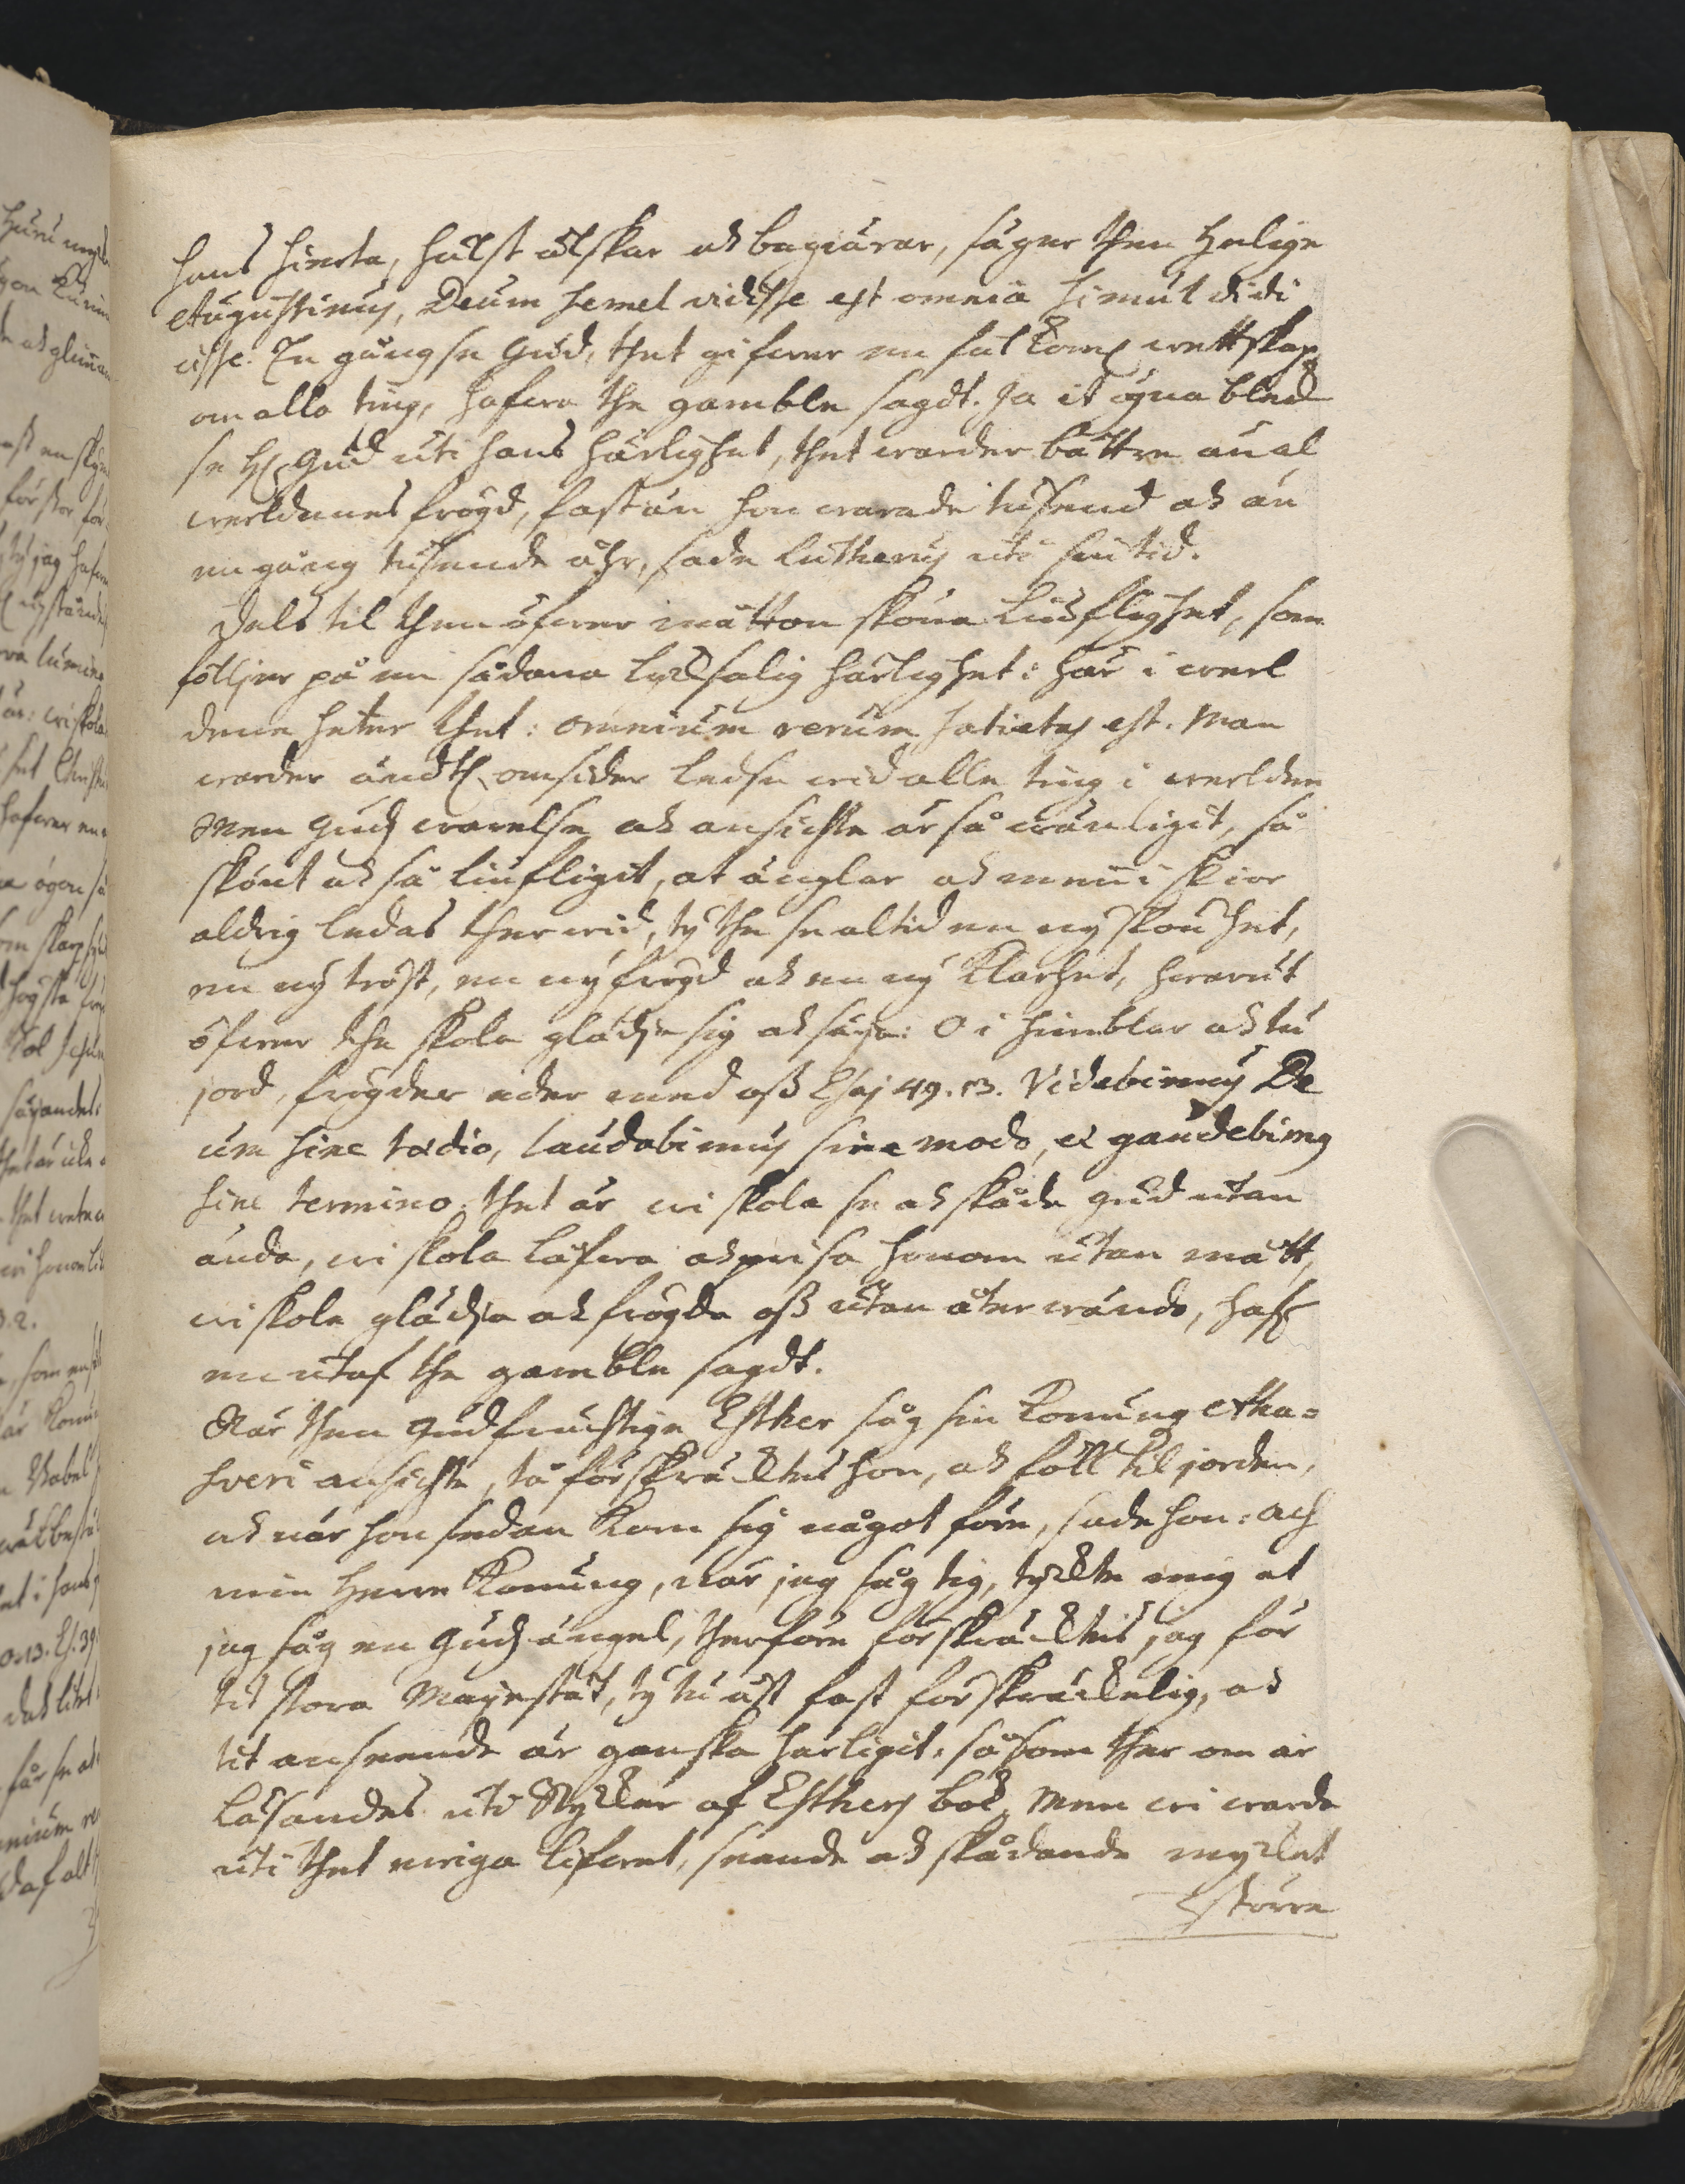 hans hierta, hälst älskar och begiärar, säger then helige
Augustinus, Deum semel vidisse est omnia simul didi
cisse. En gång se Gud, thet gifwer en fulkoml wettskap
om alla ting, hafwa the gamble sagdt. Ja it ögna bleck
se H. Gud uti hans härlighet, thet warder bättre än al
werldenes frögd, fast än hon warade tusend och än
en gång tusende åhr, sade Lutherus uti sin tid.
Dels til then öfwer måtton sköna liuflighet, som
följer på en sådana lycksalig härlighet: här i werl
denne heter thet: omnium rerum satietas est. Man
warder ändtl. omsider ledse wid alle ting i werlden
Men Guds warelse och ansichte är så wänligit, så
skönt och så liufligit, at änglar och menniskior
aldrig ledas ther wid, ty the se altid en ny skönhet,
en ny tröst, en ny frögd och en ny klarhet, hwarut
öfwer the skola glädje sig och säja: O i himblar och tu
jord, frögder eder med oss Esaj 49. 13. Videbimus De
um sine tædio, laudabimus sine modo, et gaudebimus
sine termino, thet är wi skola se och skåda Gud utan
ända, wi skola låfwa och prisa honom utan mått,
wi skole glädja och frögda oss utan återwändo, haf
en utaf the gamble sagdt.
När then gudfruchtige Esther såg sin Konung Aha=
sveri ansichte, tå förskräcktes hon, och föll til jorden,
och när hon sedan kom sig något före, sade hon: Ach
min herre Konung, när jag såg tig, tyckte mig at
jag såg en Guds ängel, therföre förskräcktis jag för
tit stora Mayestät, ty tu äst fast förskräckelig, och
tit anseende är ganska härligit, såsom ther om är
läsandes uti Stycker af Esthers bok, Men wi warda
uti thet ewiga lifwet, seende och skådande mycket
större